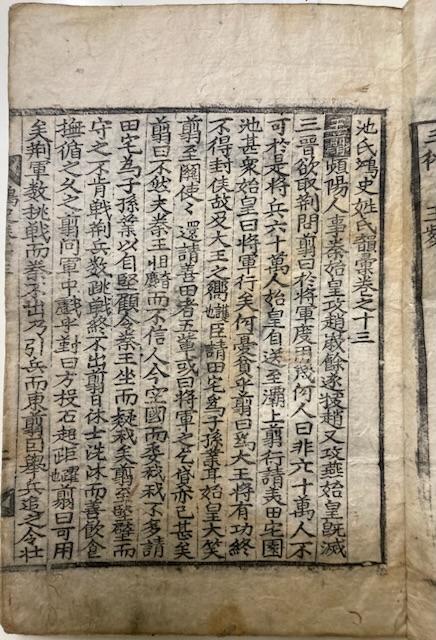 池氏鴻史姓氏韻彙卷之十三
王翦頻陽人事秦始皇攻趙歲餘遂拔趙又攻燕始皇旣滅
三晉欲取荊問翦曰於將軍度用幾何人曰非六十萬人不
可於是將兵六十萬人始皇自送至灞上翦行請美田宅園
池甚衆始皇曰將軍行矣何憂貧乎翦曰爲大王將有功終
不得封侯故及大王之嚮臣請田宅爲子孫業耳始皇大笑
翦至關使々還請善田者五輩或曰將軍之乞貸亦已甚矣
翦曰不然夫秦王怚而不信人今空國而委我我不多請
田宅爲子孫業以自堅顧令秦王坐而疑我矣翦至堅壁而
守之不肯戰荊兵数挑戰終不出翦日休士洗沐而善飮食
撫循之久之翦問軍中戱乎對曰方投石起距躍翦曰可用
矣荊軍数挑戰而秦不出乃引兵而東翦因擧兵追之令壯